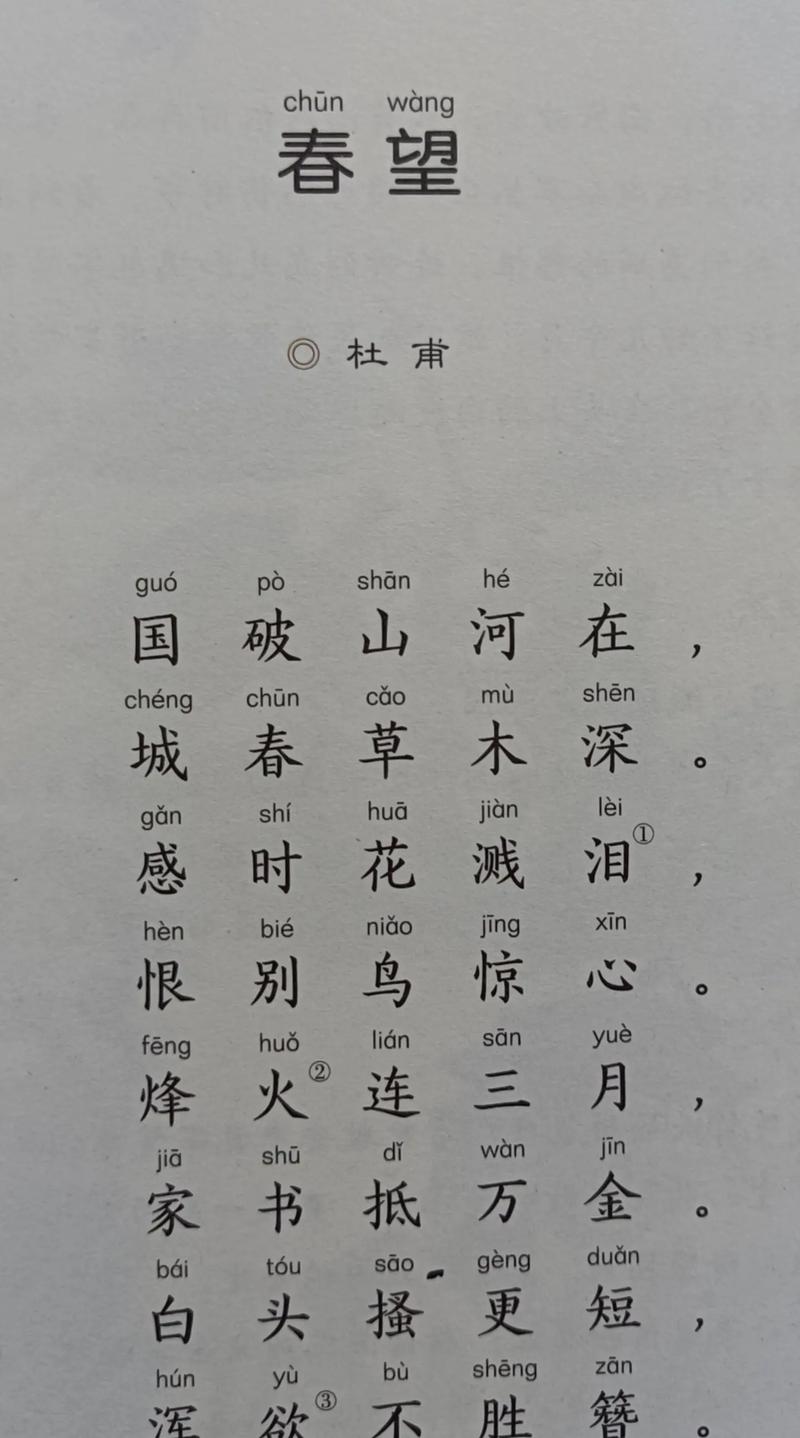 chūn wàng
春望
◎ 杜甫
guó pò shān hé zài
国破山河在，
chéng chūn cǎo mù shēn
城春草木深。
gǎn shí huā jiàn lèi
感时花溅泪①，
hèn bié niǎo jīng xīn
恨别鸟惊心。
fēng huǒ lián sān yuè
烽火②连三月，
jiā shū dǐ wàn jīn
家书抵万金。
bái tóu sāo gèng duǎn
白头搔更短，
hún yù bù shēng zān
浑欲③不胜簪。